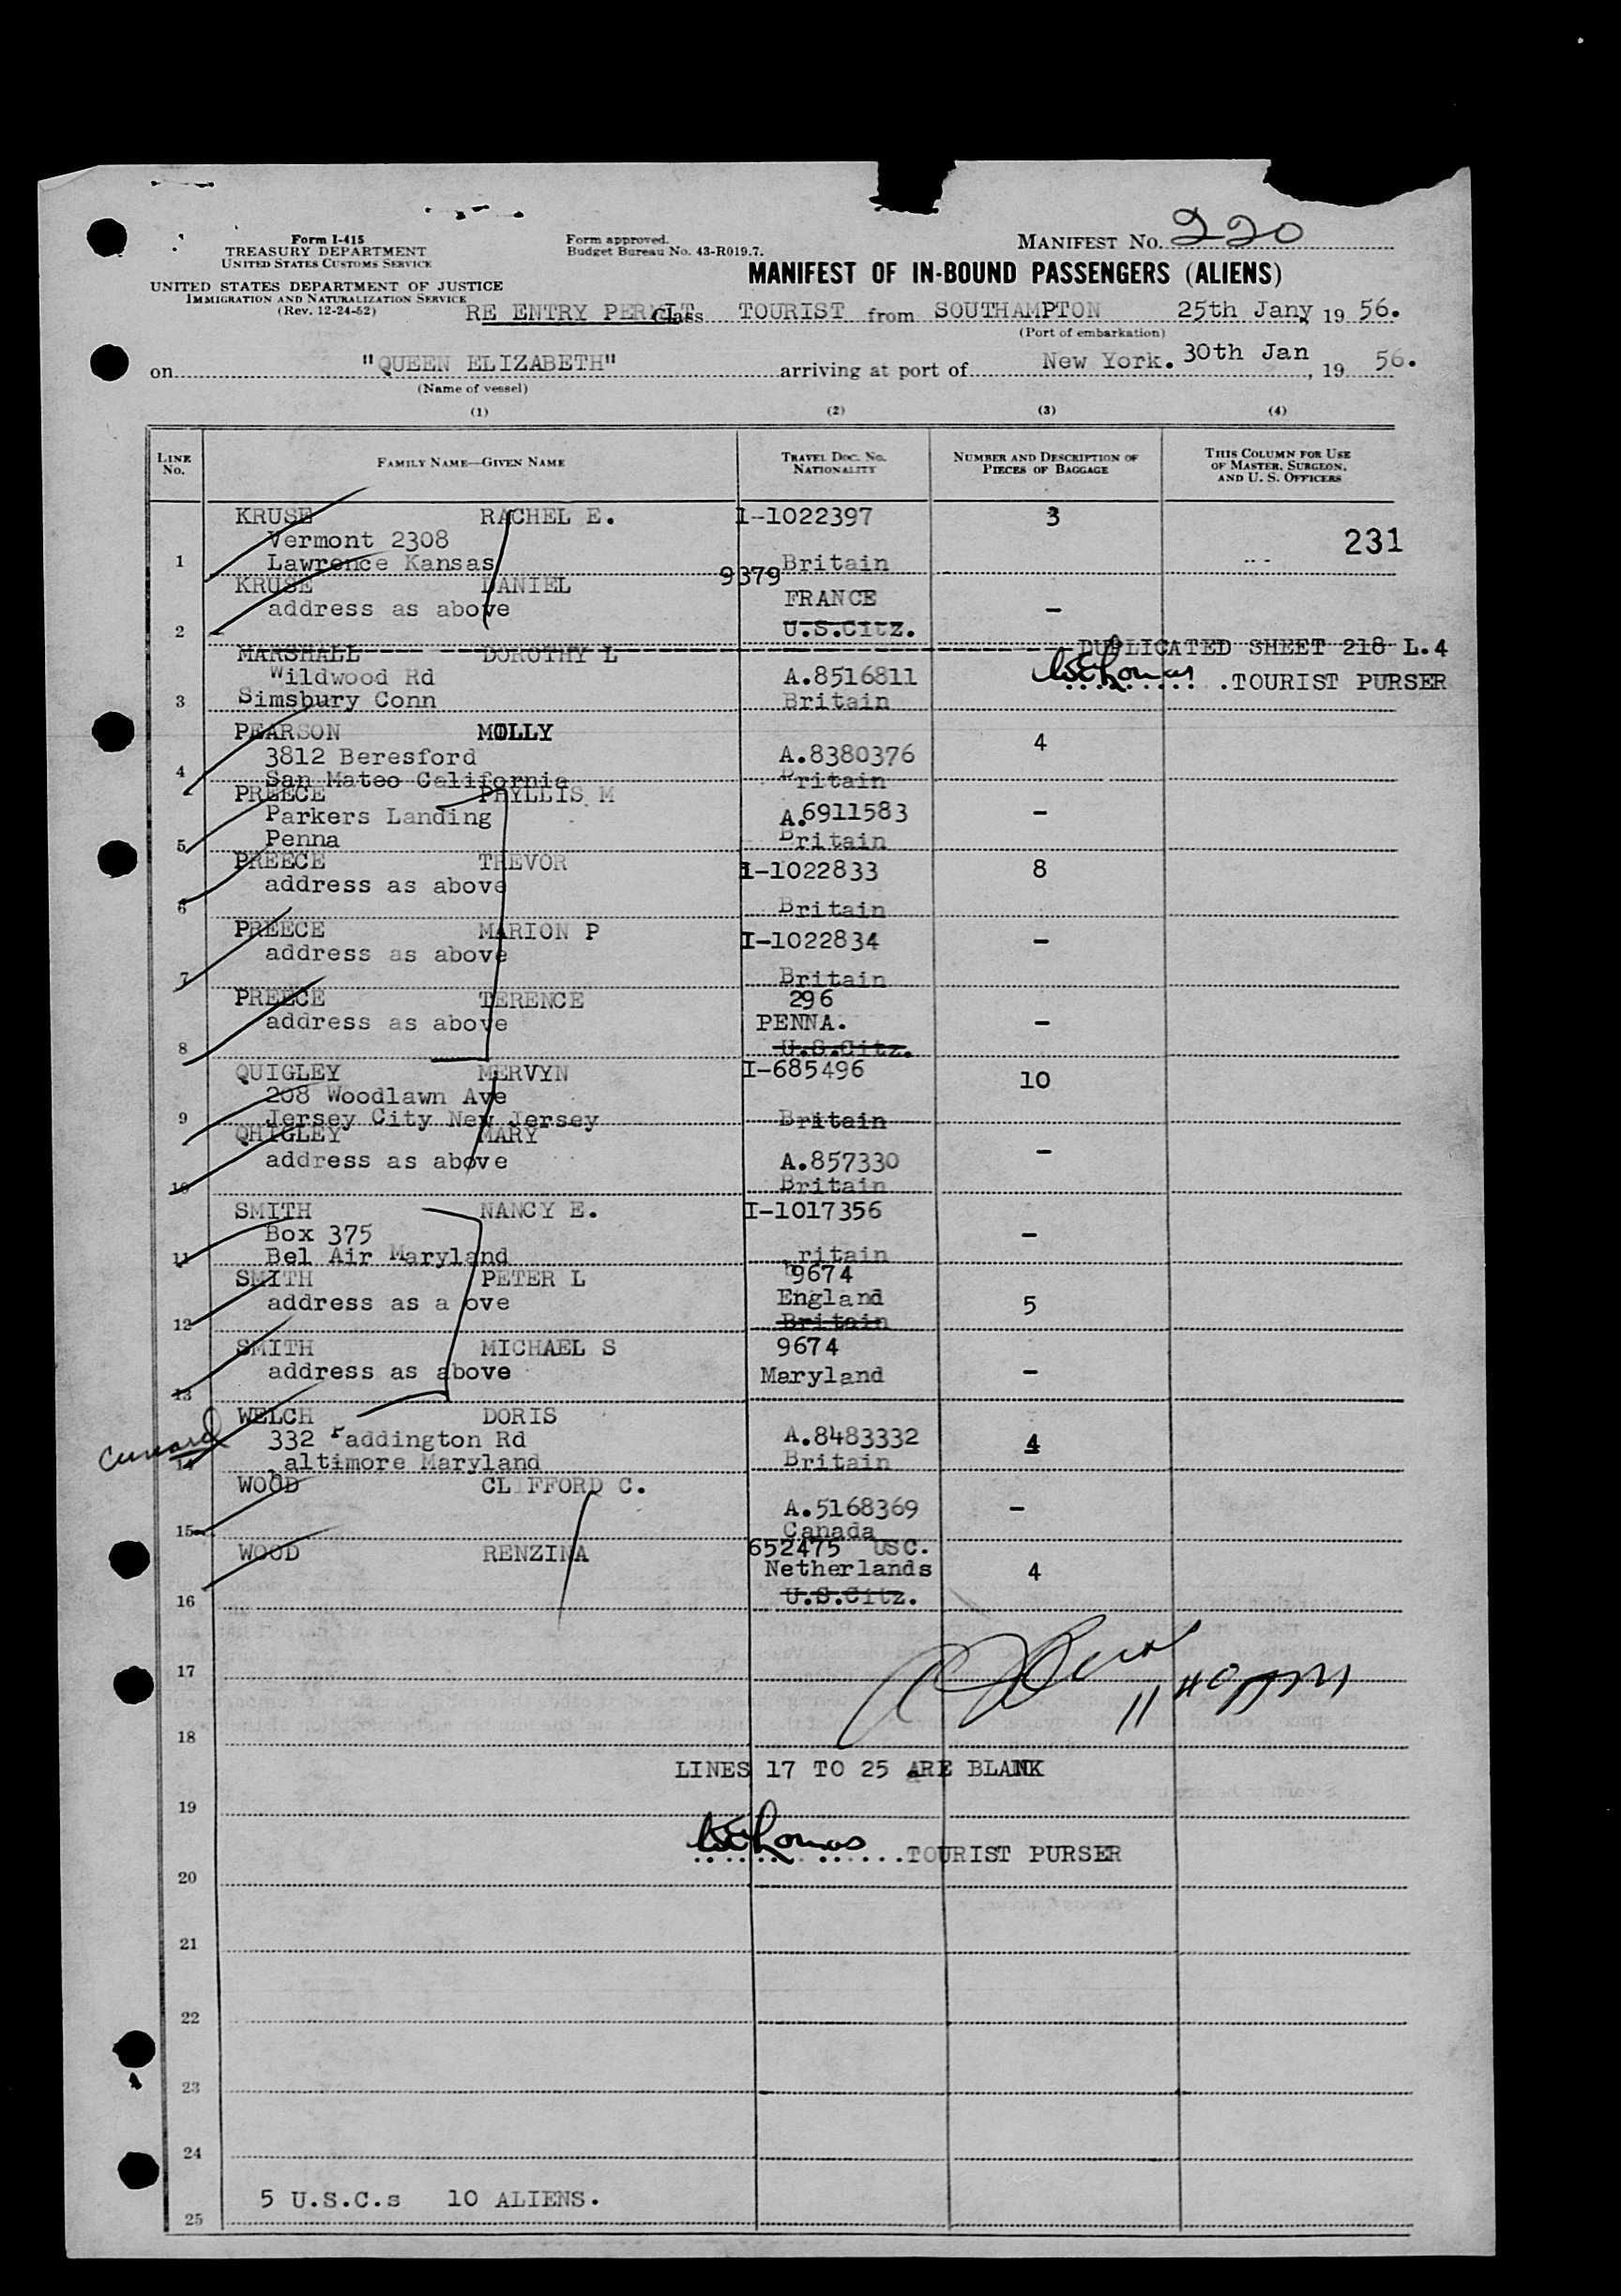 Form I-415
TREASURY DEPARTMENT
UNITED STATES CUSTOMS SERVICE
UNITED STATES DEPARTMENT OF JUSTICE
IMMIGRATION AND NATURALIZATION SERVICE
(Rev. 12-24-52)
Form approved.
Budget Bureau No. 43-R019.7.
MANIFEST NO. 220
MANIFEST OF IN-BOUND PASSENGERS (ALIENS)
RE ENTRY PERMIT Class TOURIST from SOUTHAMPTON 25th Jany 19 56.
(Port of embarkation)
on "QUEEN ELIZABETH" arriving at port of New York. 30th Jan, 19 56.
(Name of vessel)
(1) (2) (3) (4)
LINE No. FAMILY NAME—GIVEN NAME TRAVEL DOC. NO. NATIONALITY NUMBER AND DESCRIPTION OF PIECES OF BAGGAGE THIS COLUMN FOR USE OF MASTER, SURGEON, AND U. S. OFFICERS
KRUSE RACHEL E. I-1022397 3
Vermont 2308 231
1 Lawrence Kansas Britain
KRUSE DANIEL 9379
address as above FRANCE -
2 U.S.Citz.
MARSHALL DOROTHY L DUPLICATED SHEET 218 L.4
Wildwood Rd A.8516811 WEThomas .TOURIST PURSER
3 Simsbury Conn Britain
PEARSON MOLLY 4
3812 Beresford A.8380376
4 San Mateo California Britain
PREECE PHYLLIS M
Parkers Landing A.6911583 -
5 Penna Britain
PREECE TREVOR I-1022833 8
address as above
6 Britain
PREECE MARION P I-1022834 -
address as above
7 Britain
PREECE TERENCE 296
address as above PENNA. -
8 U.S.Citz.
QUIGLEY MERVYN I-685496 10
208 Woodlawn Ave
9 Jersey City New Jersey Britain
QHIGLEY MARY
address as above A.857330 -
10 Britain
SMITH NANCY E. I-1017356
Box 375 -
11 Bel Air Maryland britain
SMITH PETER L 9674
address as a ove England 5
12 Britain
SMITH MICHAEL S 9674
address as above Maryland -
13
WELCH DORIS
Cunard 332 Paddington Rd A.8483332 4
14 baltimore Maryland Britain
WOOD CLIFFORD C.
A.5168369 -
15 Canada
WOOD RENZINA 652475 USC.
Netherlands 4
16 U.S.Citz.
17
18
LINES 17 TO 25 ARE BLANK
19
WEThomas ......TOURIST PURSER
20
21
22
23
24
5 U.S.C.s 10 ALIENS.
25